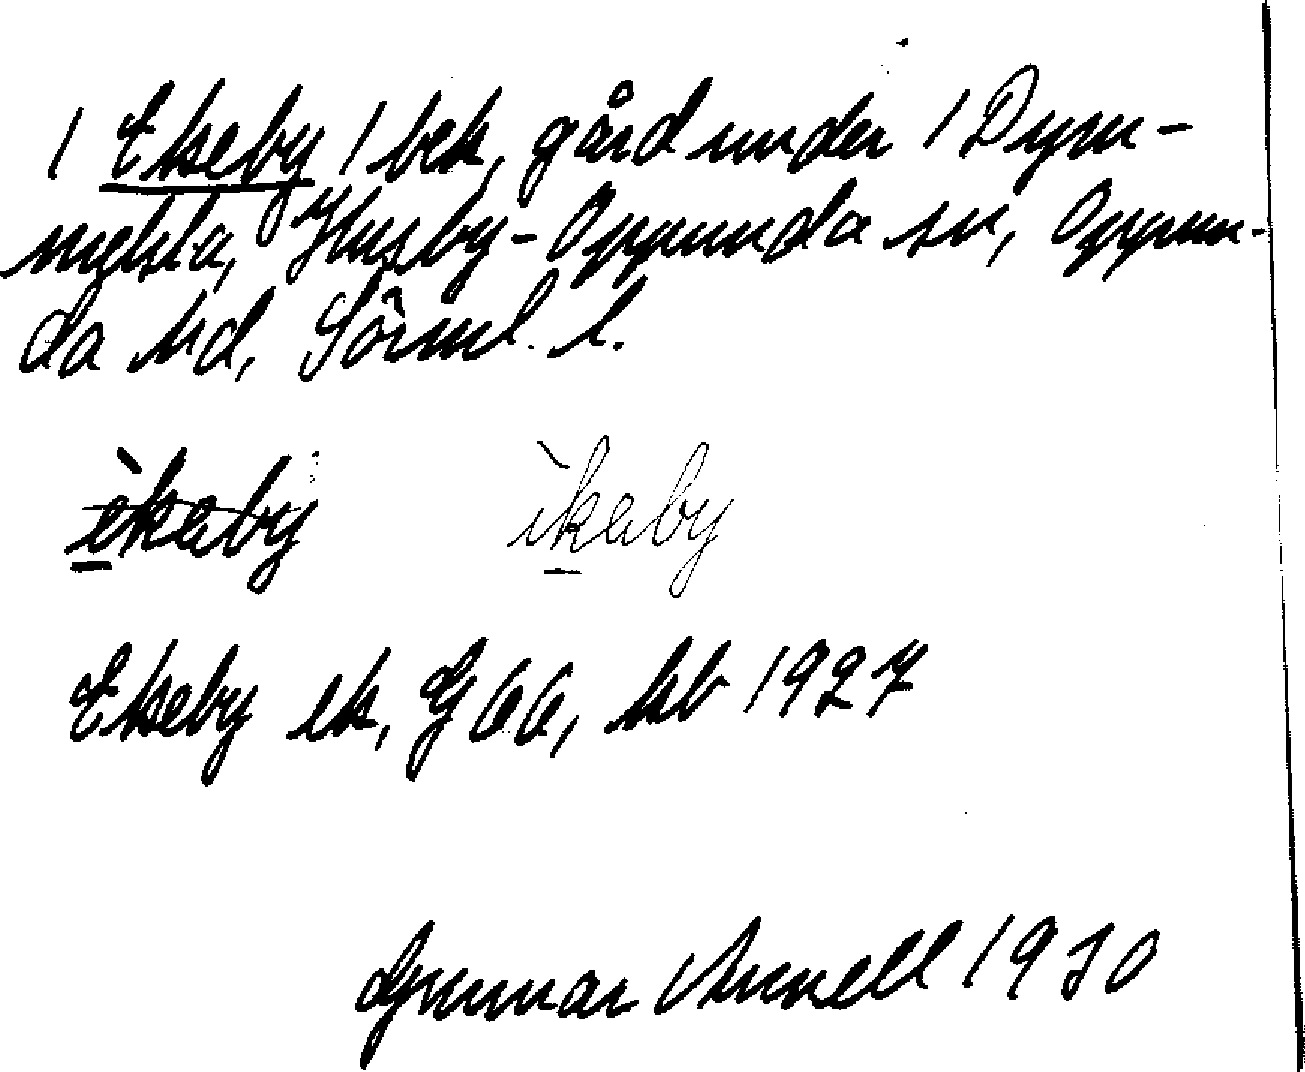 1 Ekeby 1 bek, gård under 1 Dym-
melsta, Husby-Oppunda sn, Oppun-
da hd, Sörml. l.
èkaby ìkaby
Ekeby ek, G 66, kb 1927
Gunnar Arnell 1930